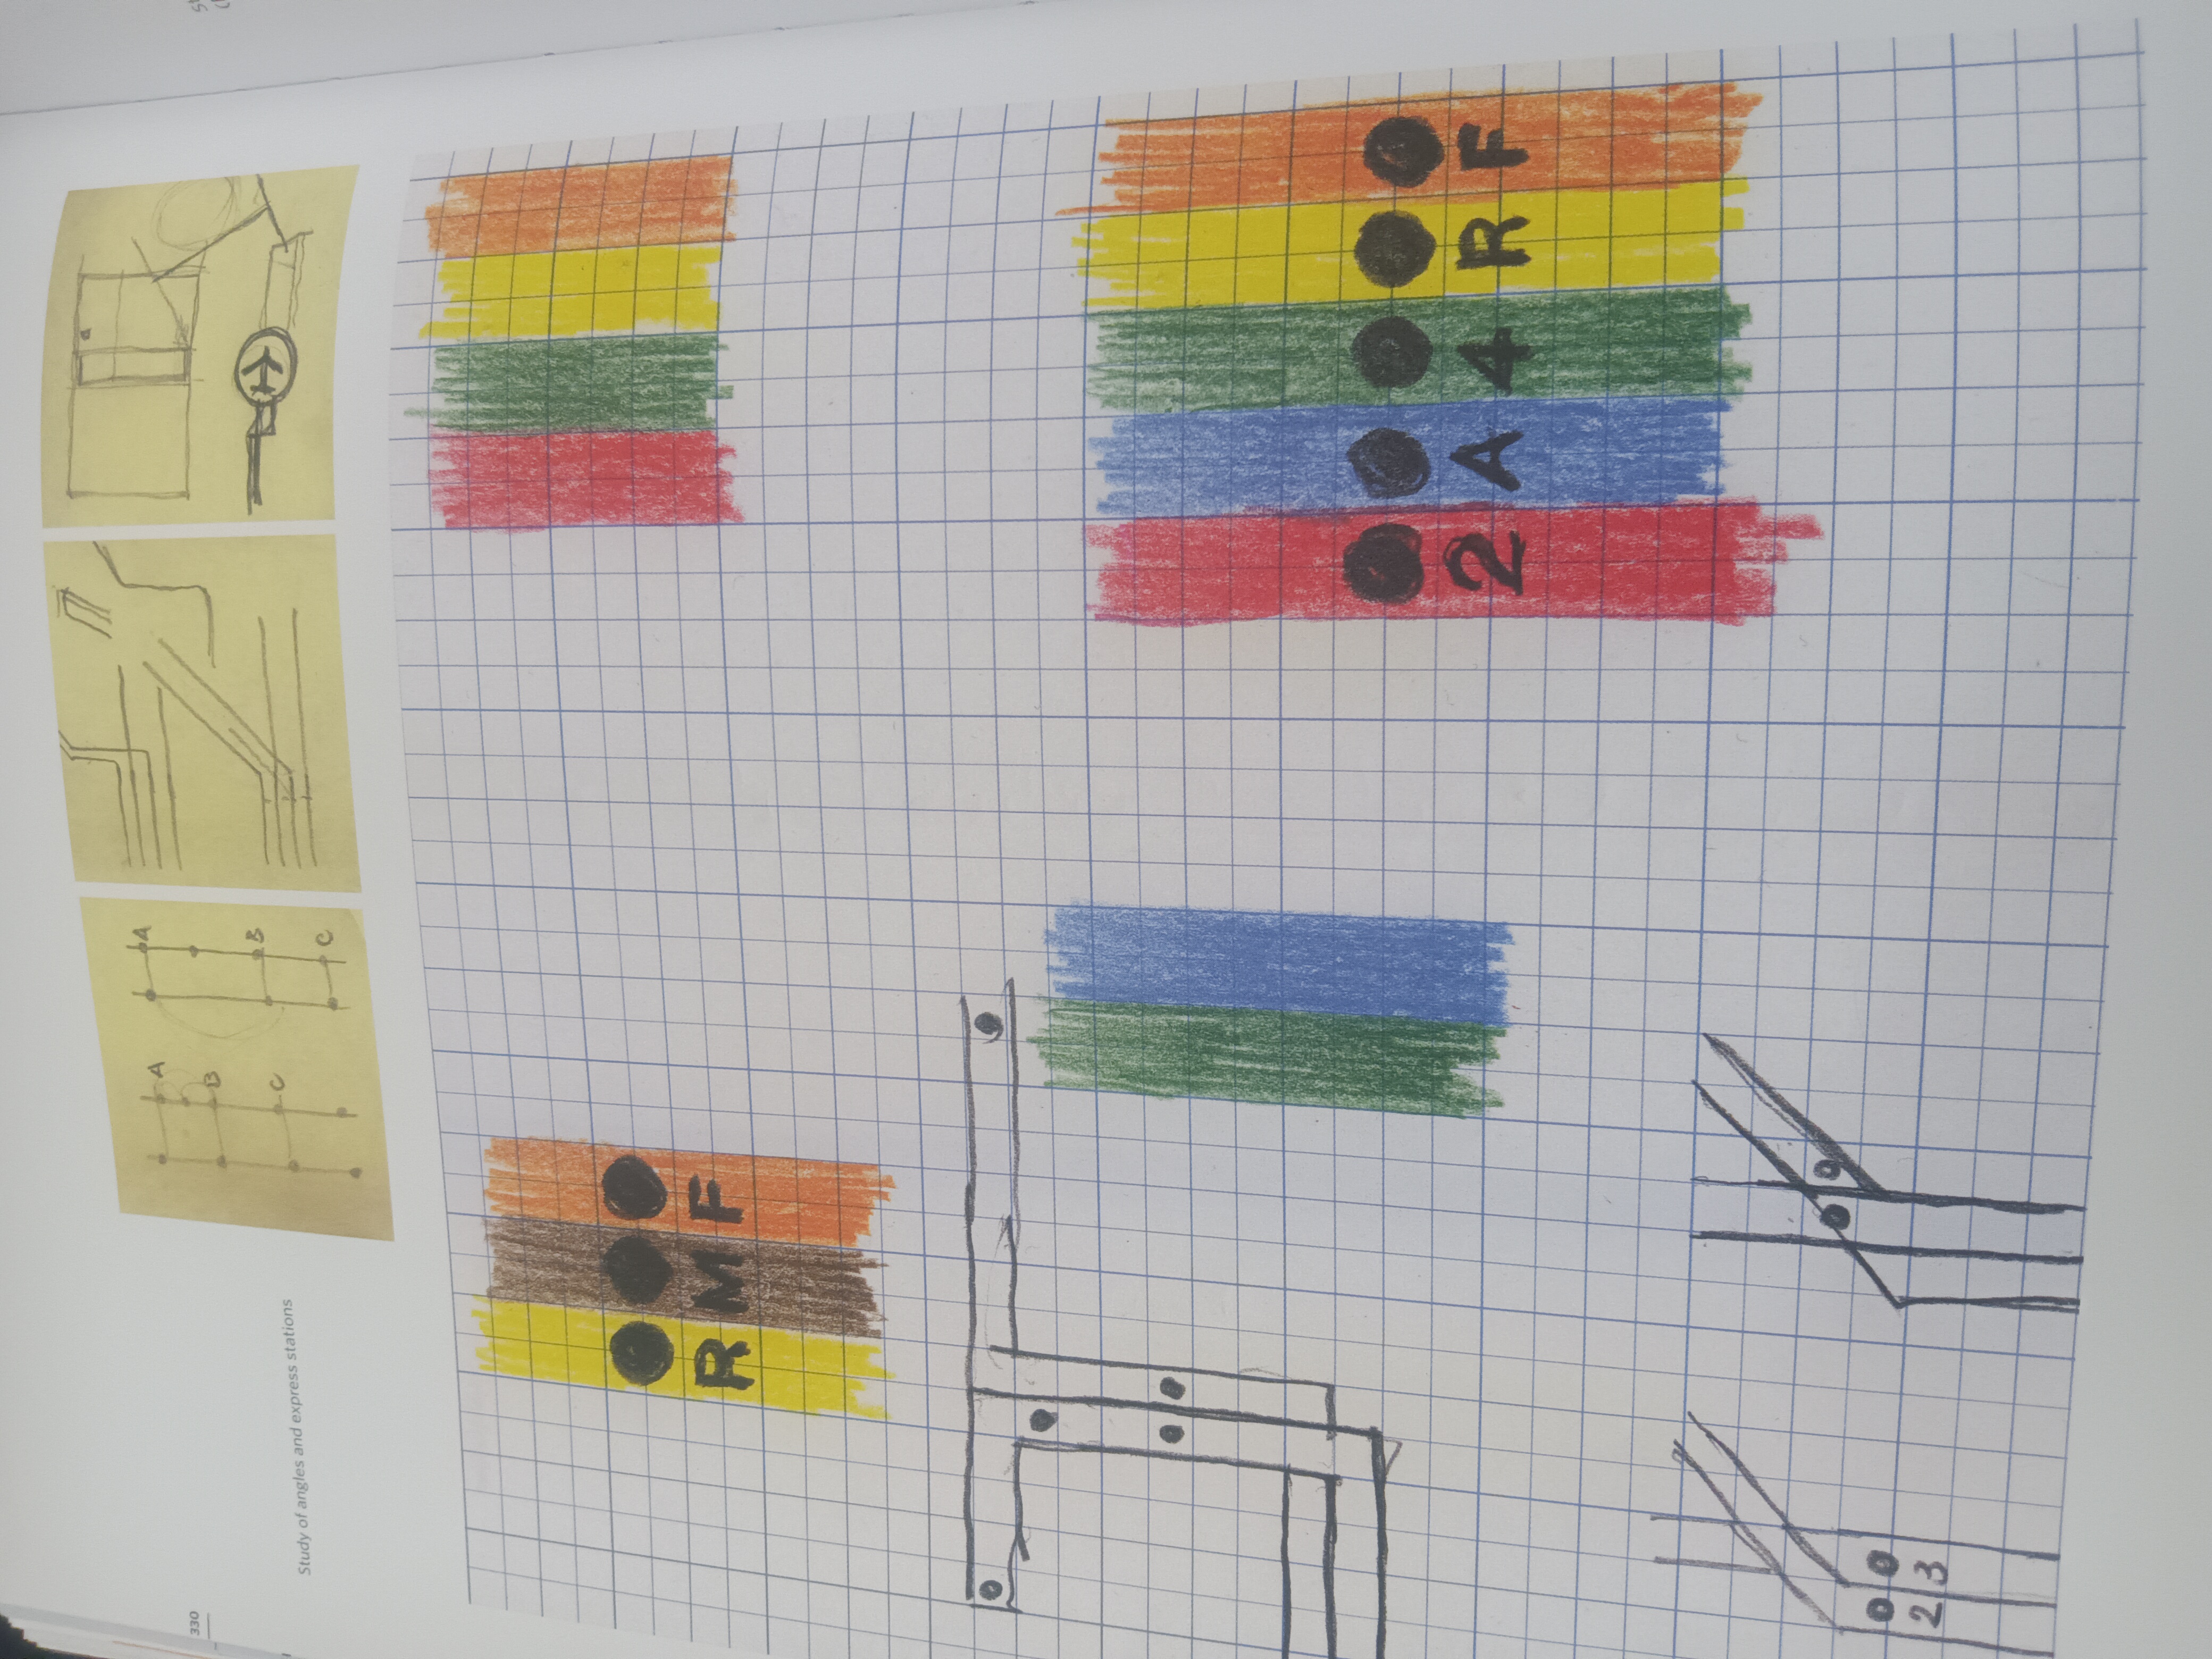 330
Study of angles and express stations
A
B
C
A
B
C
R M F
2 A 4 R F
2 3